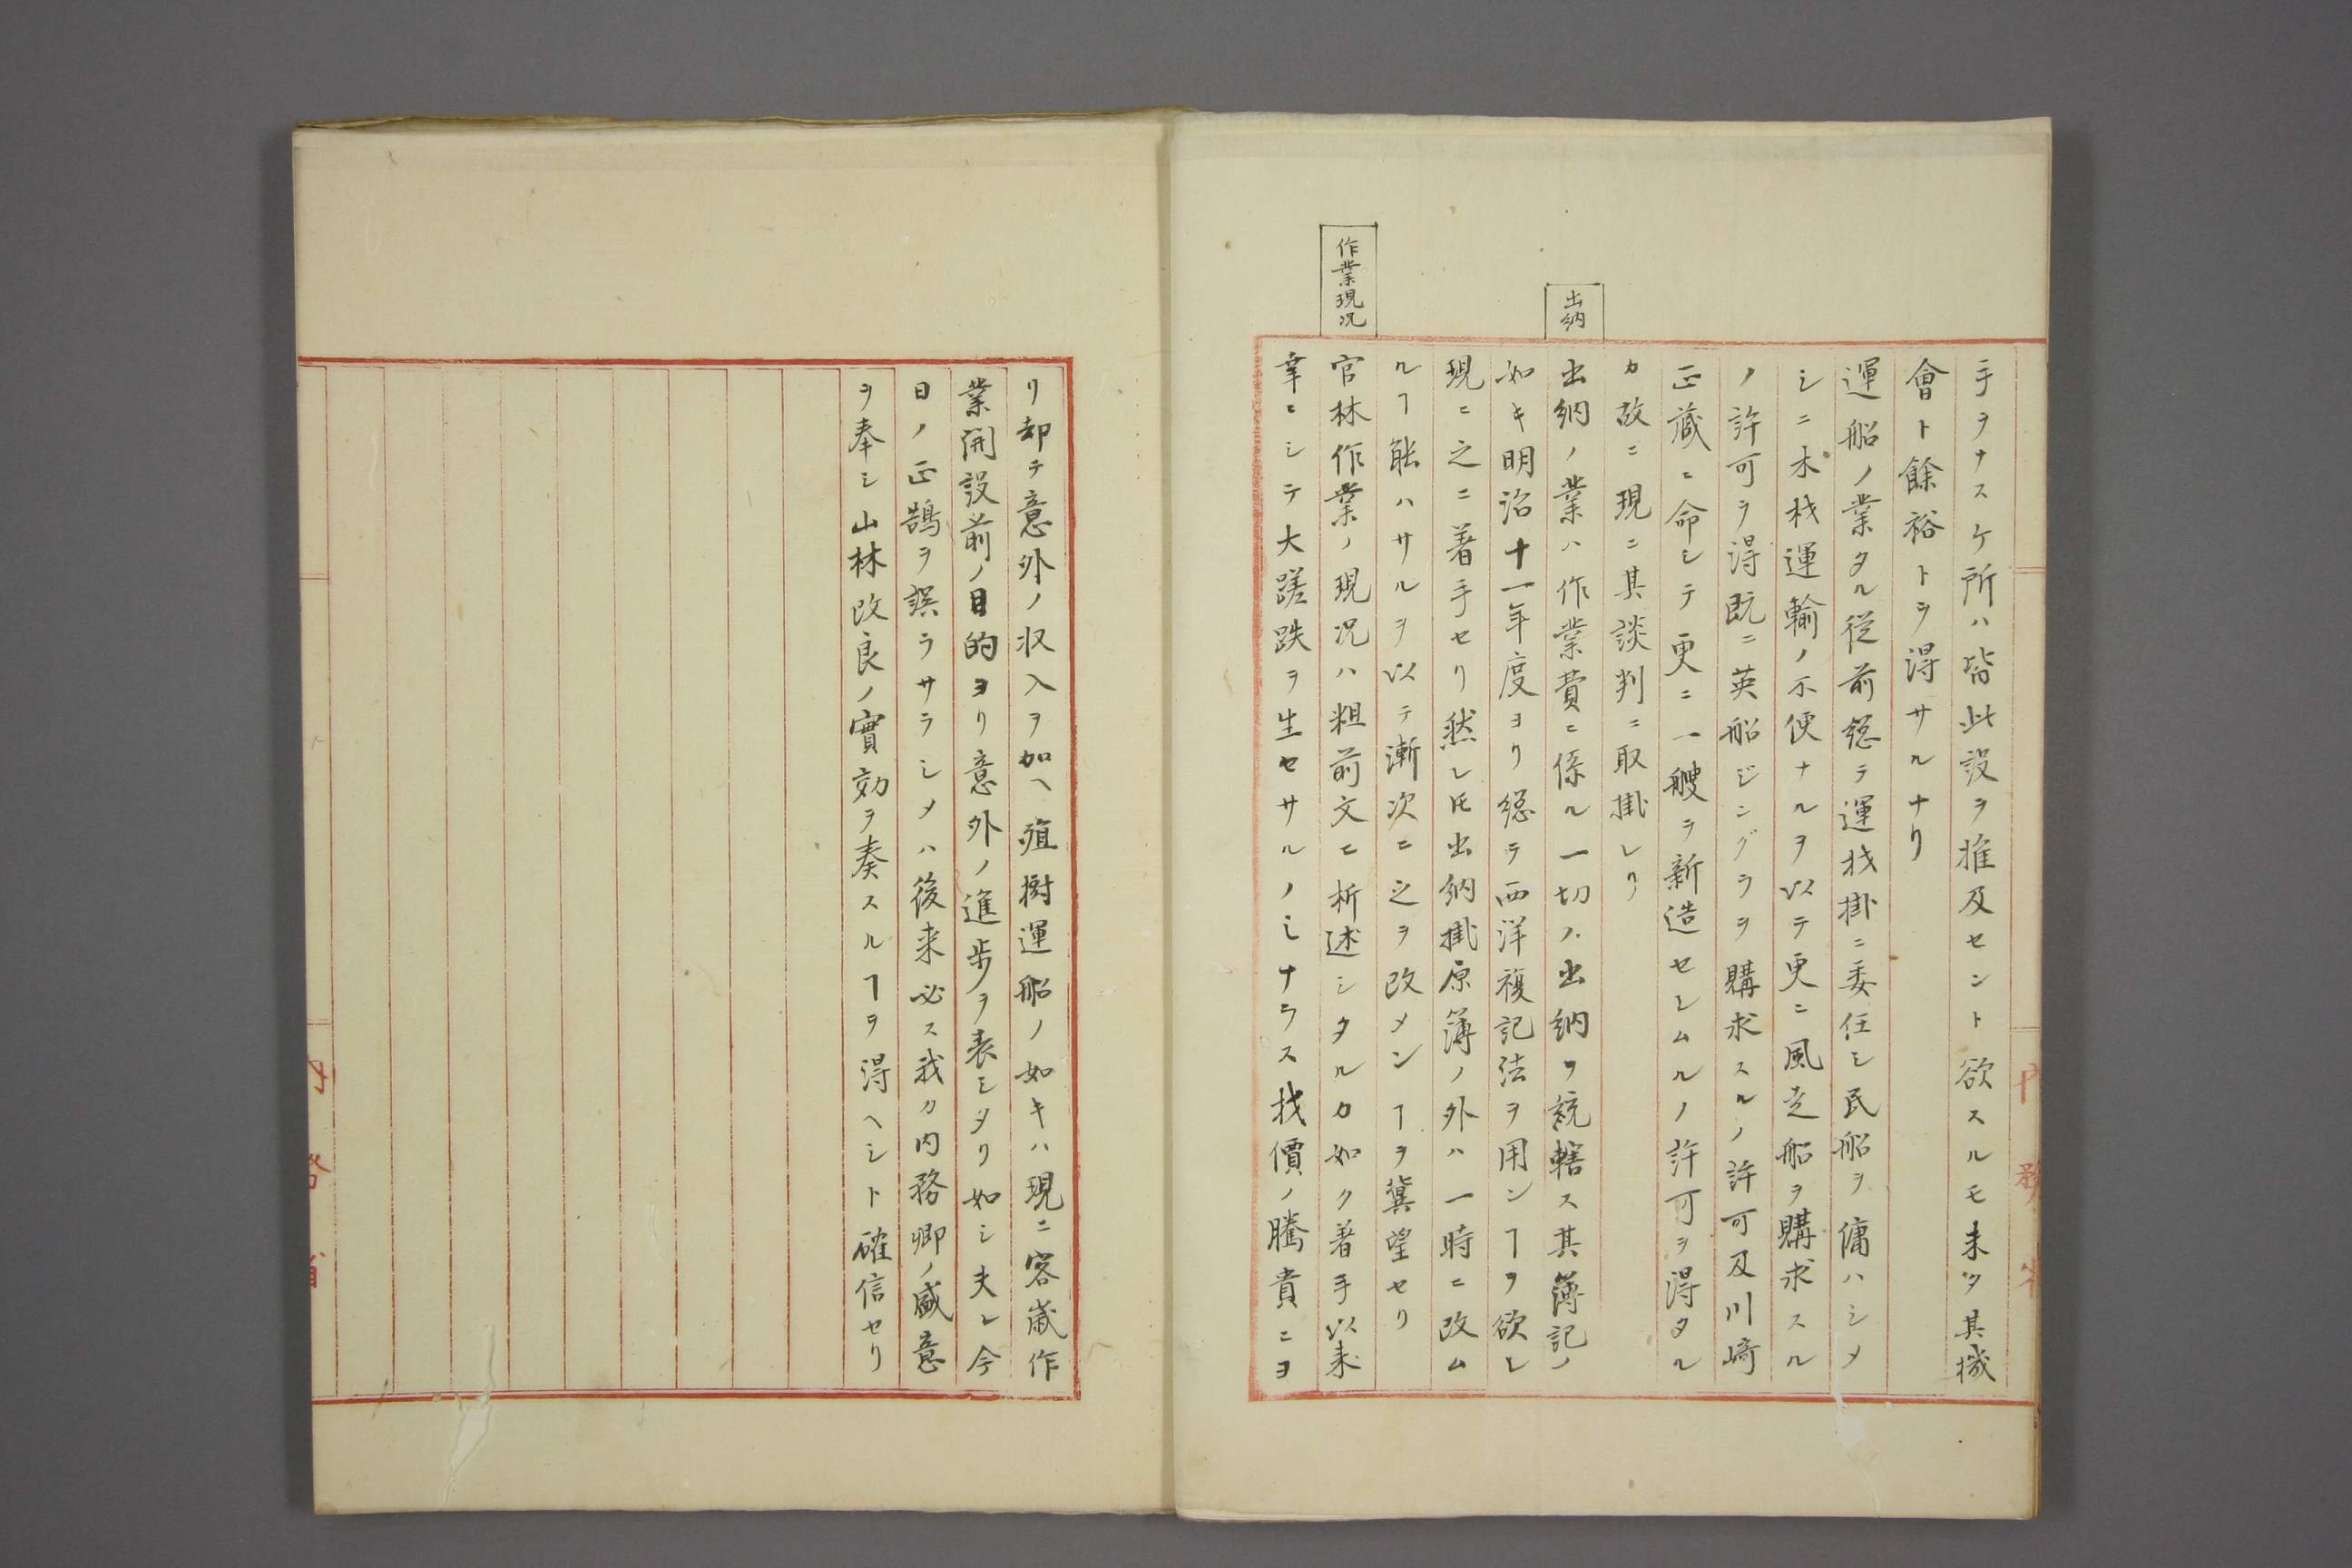 手ヲナスケ所ハ皆此設ヲ推及セント欲スルモ未タ其機
會ト餘裕トヲ得サルナリ
運船ノ業タル從前總テ運材掛ニ委任シ民船ヲ傭ハシメ
シニ木材運輸ノ不便ナルヲ以テ更ニ風走船ヲ購求スル
ノ許可ヲ得既ニ英船ジングラヲ購求スルノ許可及川﨑
正藏ニ命シテ更ニ一艘ヲ新造セシムルノ許可ヲ得タル
カ故ニ現ニ其談判ニ取掛レリ
出納
出納ノ業ハ作業費ニ係ル一切ノ出納ヲ統轄ス其簿記ノ
如キ明治十一年度ヨリ總テ西洋複記法ヲ用ンヿヲ欲シ
現ニ之ニ着手セリ然レ𪜈出納掛原簿ノ外ハ一時ニ改ム
ルヿ能ハサルヲ以テ漸次ニ之ヲ改メンヿヲ冀望セリ
作業現况
官林作業ノ現况ハ粗前文ニ析述シタルカ如ク著手以来
幸ニシテ大蹉跌ヲ生セサルノミナラス材價ノ騰貴ニヨ
リ却テ意外ノ収入ヲ加ヘ殖樹運船ノ如キハ現ニ客歳作
業開設前ノ目的ヨリ意外ノ進歩ヲ表シタリ如シ夫レ今
日ノ正鵠ヲ誤ラサラシメハ後来必ス我カ内務卿ノ盛意
ヲ奉シ山林改良ノ實効ヲ奏スルヿヲ得ヘシト確信セリ
内務省